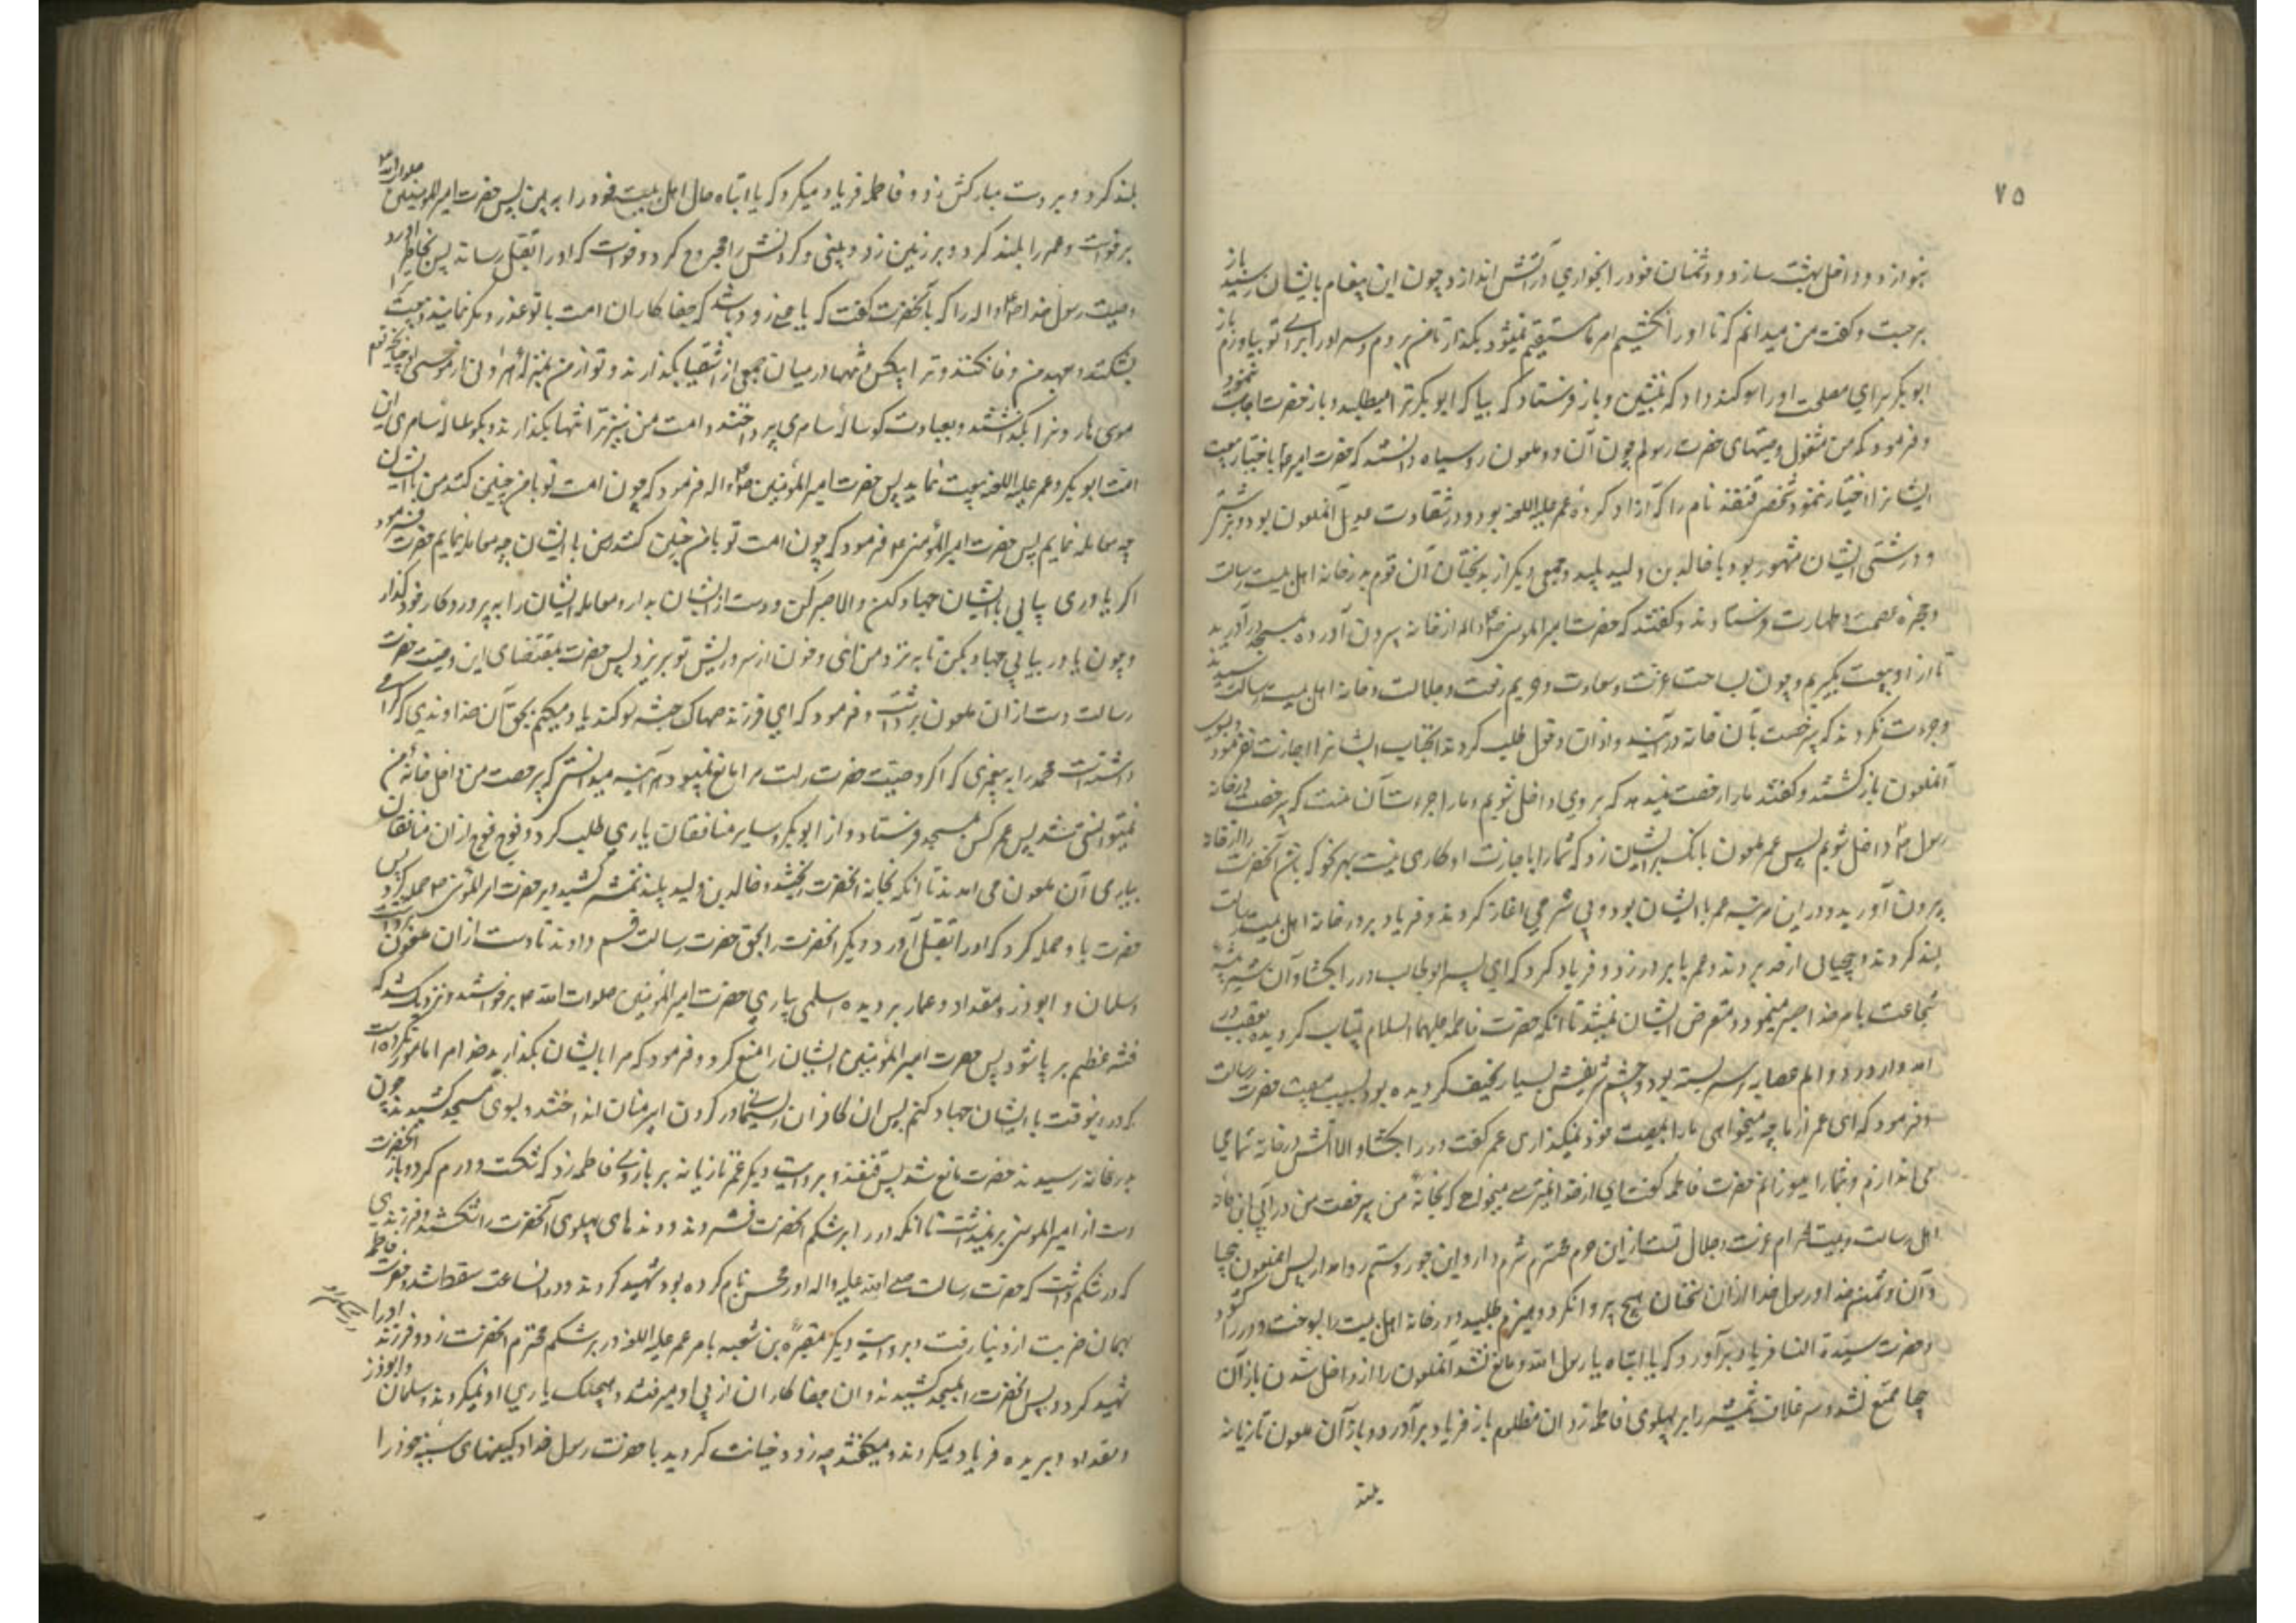 ۷۵
بنوازد و داخل بهشت سازد و دشمنان خود را بخواری در آتش اندازد و چون این پیغام بایشان رسید باز
برجست و گفت من میدانم که تا او را نکشیم امر ما مستقیم نمیشود بگذار تا من بروم و سر او را برای تو بیاورم باز
ابوبکر برای مصلحت او را سوکند داد که بنشین و باز فرستاد که بیا که ابوبکر ترا میطلبد و باز حضرت اجابت ننمود
و فرمود که من مشغول وصیتهای حضرت رسولم چون آن دو ملعون روسیاه دانستند که حضرت امیر باختیار بیعت
ایشانرا اختیار نمود شخص قنفذ نام را که آزاد کردهٔ عمر علیه اللعنه بود و در شقاوت عدیل آنملعون بود و بزشتی
و درشتی ایشان مشهور بود با خالد بن ولید پلید و جمعی دیگر از بدبختان آن قوم بدر خانه اهل بیت رسالت
و حجره عصمت و طهارت فرستادند و گفتند که حضرت امیرالمومنین را از خانه بیرون آورده بمسجد درآورید
تا از او بیعت بگیریم و چون بساحت عزت و سعادت و حریم رفعت و جلالت و خانه اهل بیت رسالت رسیدند
جرءت نکردند که بی رخصت بآن خانه درآیند و اذن دخول طلب کردند انجناب ایشانرا اجازت نفرمود
آنملعون بازگشتند و گفتند ما را رخصت نمیدهد که بروی او داخل شویم و ما را جرءت آن نیست که بی رخصت در خانه
رسول داخل شویم پس عمر ملعون بانک بر ایشان زد که شما را با اجازت او کاری نیست بهر نحو که باشد آنحضرت را از خانه
بیرون آورید و در این مرتبه عمر با ایشان بود و بی شرمی آغاز کردند و فریاد بر در خانه اهل بیت رسالت
بلند کردند و بیحیائی از حد بردند و عمر پا بر در زد و فریاد کرد که ای پسر ابوطالب در را بکشا و آن شیر بیشه
شجاعت بامر خدا صبر مینمود و متعرض ایشان نمیشد تا آنکه حضرت فاطمه علیها السلام بیتاب گردیده بعقب در
آمد و از درد و الم عصابه بر سر بسته بود و جسم شریفش بسیار نحیف گردیده بود بسبب مصیبت حضرت رسالت
و فرمود که ای عمر از ما چه میخواهی ما را بمصیبت خود نمیگذاری عمر گفت در را بکشا و الا آتش در خانه شما می
می اندازم و شما را میسوزانم حضرت فاطمه گفت ای از خدا نمیترسی میخواهی که بخانهٔ من بی رخصت من درآیی این خانه
اهل رسالت و بیت الحرام عزت و جلال تست از این حرم محترم شرم دار و این جور و ستم روا مدار پس انملعون بیحیا
و آن دشمن خدا و رسول خدا از ان سخنان هیچ پروا نکرد و هیزم طلبید و در خانه اهل بیت را بسوخت و در را گشود
و حضرت سیدة النسا فریاد برآورد که یا ابتاه یا رسول الله و مانع نشد آنملعون را از داخل شدن باز آن
بیحیا ممتنع نشد و سر غلاف شمشیر را بر پهلوی فاطمه زد ان مظلوم باز فریاد برآورد و باز آن ملعون تازیانه
بلند
بلند کرد و بر دست مبارکش زد و فاطمه فریاد میکرد که یا ابتاه حال اهل بیت خود را به بین پس حضرت امیرالمومنین صلوات الله
برخواست و عمر را بلند کرد و بر زمین زد و بینی و گردنش را مجروح کرد و خواست که او را بقتل رساند پس بخاطر آورد
وصیت رسول خدا را که بآنحضرت گفت که یا علی زود باشد که جفا کاران امت با تو غدر و مکر نمایند و بیعت
بشکنند و بعهد من وفا نکنند و ترا بیکس و تنها در میان جمعی از اشقیا بگذارند و تو از من بمنزلهٔ هارونی از موسی چنانچه قوم
موسی هارون را بگذاشتند و بعبادت کوساله سامری پرداختند و امت من نیز ترا تنها بگذارند و بگوساله سامری این
امت ابوبکر و عمر علیه اللعنه بیعت نماید پس حضرت امیرالمؤمنین فرمود که چون امت تو با من چنین کنند من با ایشان
چه معامله نمایم پس حضرت امیرالمؤمنین فرمود که چون امت تو با من چنین کنند من با ایشان چه معامله نمایم حضرت فرمود
اگر یاوری بیابی با ایشان جهاد کن و الا صبر کن و دست از ایشان بدار و معامله ایشان را به پروردکار خود گذار
و چون یاور بیابی جهاد بکن تا به نزد من آئی و خون از سر و ریش تو بریزد پس حضرت بمقتضای این وصیت حضرت
رسالت دست از ان ملعون برداشت و فرمود که ای فرزند صهاک حبشیه سوکند یاد میکنم بحق آن خداوندی که گرامی
داشته است محمد را به پیغمبری که اگر وصیت حضرت رسالت مرا مانع نمیبود هر آینه میدانستی که بی رخصت من داخل خانهٔ من
نمیتوانستی شد پس عمر کس بمسجد فرستاد و از ابوبکر و سایر منافقان یاری طلب کرد و فوج فوج از ان منافقان
بیاری آن ملعون می امدند تا آنکه بخانه انحضرت ریختند و خالد بن ولید پلید شمشیر کشید و بر حضرت امیرالمؤمنین حمله کرد پس
حضرت باو حمله کرد که او را بقتل آورد دیگر انحضرت را بحق حضرت رسالت قسم دادند تا دست از ان ملعون برداشت
و سلمان و ابوذر و مقداد و عمار و بریده اسلمی بیاری حضرت امیرالمؤمنین صلوات الله برخواستند و نزدیک شد که
فتنه عظیم بر پا شود پس حضرت امیرالمؤمنین ایشان را منع کرد و فرمود که مرا بایشان بگذارید خدا مرا مامور نکرده است
که در اینوقت با ایشان جهاد کنم پس ان کافران ریسمانی در گردن امیر منان انداختند و بسوی مسجد کشیدند چون
بدر خانه رسیدند حضرت مانع شد پس قنفذ و بروایت دیگر عمر تازیانه بر بازوی فاطمه زد که شکست و ورم کرد و باز انحضرت
دست از امیرالمومنین برنمیداشت تا آنکه در را بر شکم انحضرت فشردند و دنده های پهلوی انحضرت را شکستند و فرزندی
که در شکم داشت که حضرت رسالت صلی الله علیه واله او را محسن نام کرده بود شهید کردند و در انساعت سقط شد و حضرت فاطمه
بهمان ضربت از دنیا رفت و بروایت دیگر مغیرة بن شعبه بامر عمر علیه اللعنه در بر شکم محترم انحضرت زد و فرزند او را
شهید کرد و پس انحضرت را بمسجد کشیدند و ان جفا کاران از پی او میرفتند و هیچیک یاری او نمیکردند و سلمان و ابوذر
و مقداد و بریده فریاد میکردند و میگفتند چه زود خیانت کردید با حضرت رسول خدا و کینهای سینه خود را